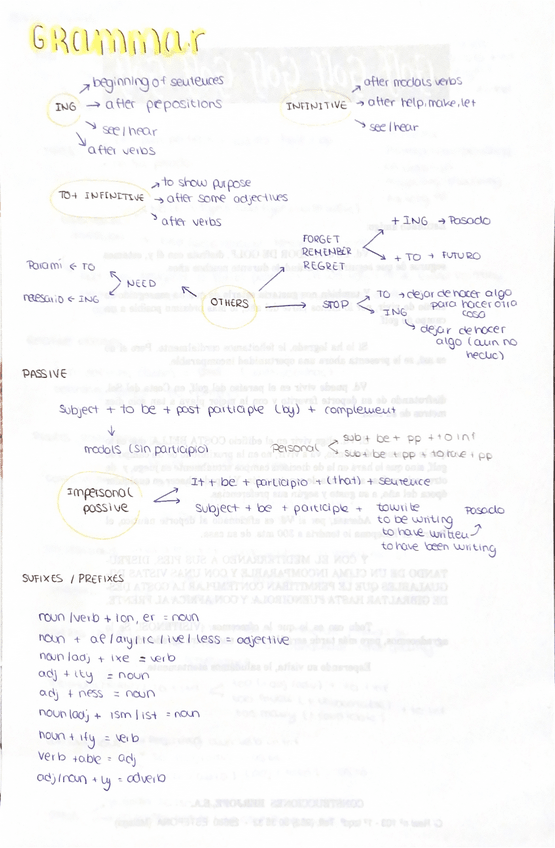 Grammar
ING
→ beginning of sentences
→ after pepositions
→ see/hear
→ after verbs
INFINITIVE
→ after modals verbs
→ after help, make, let
→ see/hear
TO + INFINITIVE
→ to show pupose
→ after some adjectives
→ after verbs
OTHERS
NEED
Para mi ← TO
necesario ← ING
FORGET
REMEMBER
REGRET
+ ING → Pasado
+ TO → FUTURO
STOP
TO → dejar de hacer algo
para hacer otra
cosa
ING
dejar de hacer
algo (aun no
hecho)
PASSIVE
Subject + to be + past participle (by) + complement
↓
modals (sin participio)
Personal
sub + be + pp + to inf
sub + be + pp + to have + pp
Impersonal
passive
It + be + participio + (that) + sentence
Subject + be + participle + to write
to be writing
to have written
to have been writing
Pasado
SUFIXES / PREFIXES
noun/verb + ion, er = noun
noun + al/ary/ic/ive/less = adjective
noun/adj + ixe = verb
adj + ity = noun
adj + ness = noun
noun/adj + ism/ist = noun
noun + ify = verb
verb + able = adj
adj/noun + ly = adverb